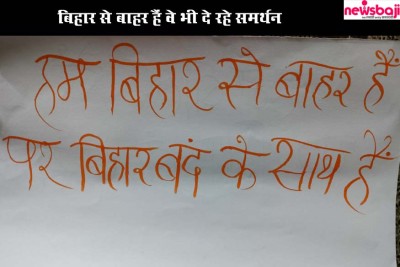 बिहार से बाहर हैं वे भी दे रहे समर्थन
newsbaji
हम बिहार से बाहर हैं
पर बिहार बंद के साथ हैं